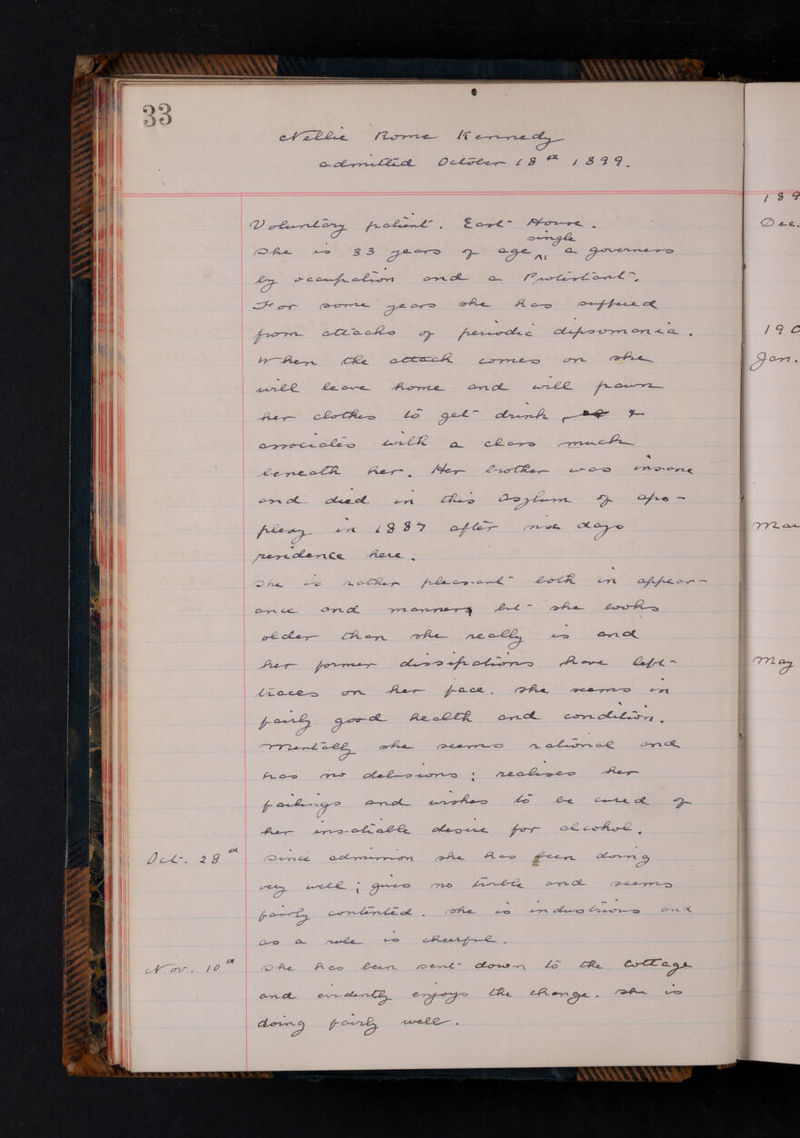 33
Nellie Rome Kennedy
admitted October 18th 1899.
Voluntary patient. East House.
single
She is 33 years of age ^ a governess
by occupation and a Protestant.
For some years she has suffered
from attacks of periodic dipsomania.
When the attack comes on she
will leave home and will pawn
her clothes to get drink &
associates with a class much
beneath her. Her brother was insane
and died in this Asylum of apo-
plexy in 1887 after six days
residence here.
She is rather pleasant both in appear-
ance and manners but she looks
older than she really is and
her former dissipations have left
traces on her face. She seems in
fairly good health and condition.
Mentally she seems rational and
has no delusions; realises her
failings and wishes to be cured of
her insatiable desire for alcohol.
Oct. 28th Since admission she has been doing
very well; gives no trouble and seems
fairly contented. She is industrious and
as a rule is cheerful.
Nov. 10th She has been sent down to the Cottage
and evidently enjoys the change. She is
doing fairly well.
189
Dec.
190
Jan.
Mar
May